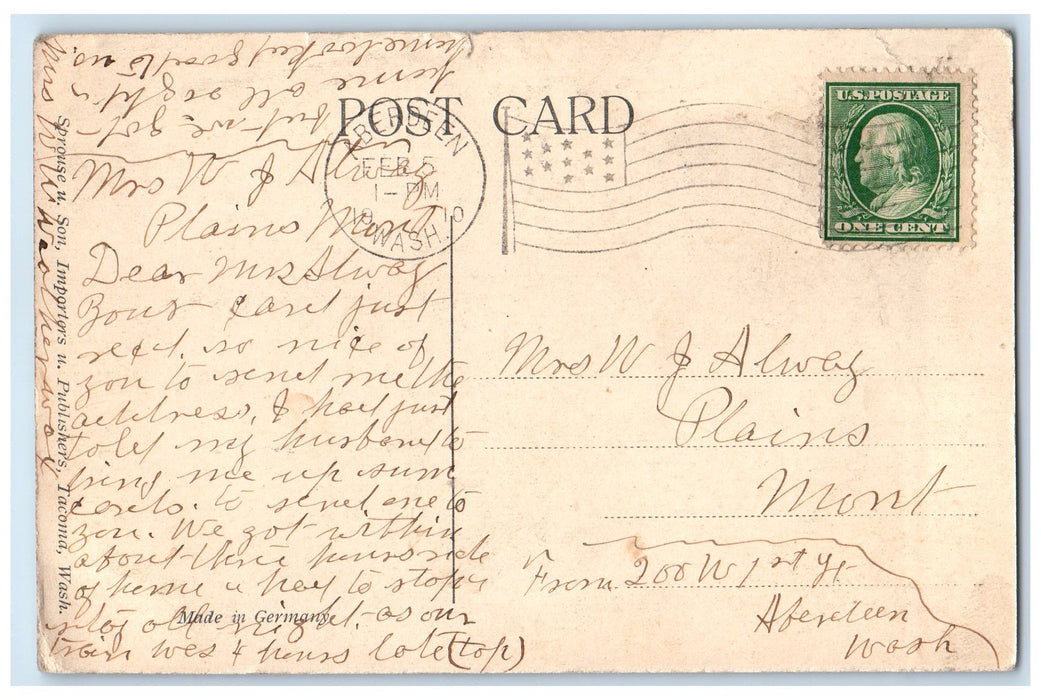 POST CARD
ABERDEEN
FEB 5
1-PM
1910
WASH.
U.S. POSTAGE
ONE CENT
Mrs W J Alway
Plains Mont
Dear Mrs Alway
Your card just
recd. so nice of
you to send me the
address, I had just
told my husband to
bring me up sum
cards. to send one to
you. We got within
about three hours ride
of home & had to stop &
stay all night. as our
train was 4 hours late (top)
but we got
home all right &
home looked good to us.
Mrs
Sprouse u. Son, Importers u. Publishers, Tacoma, Wash.
Made in Germany
Mrs W J Alway
Plains
Mont
From 200 W 1st St
Aberdeen
Wash